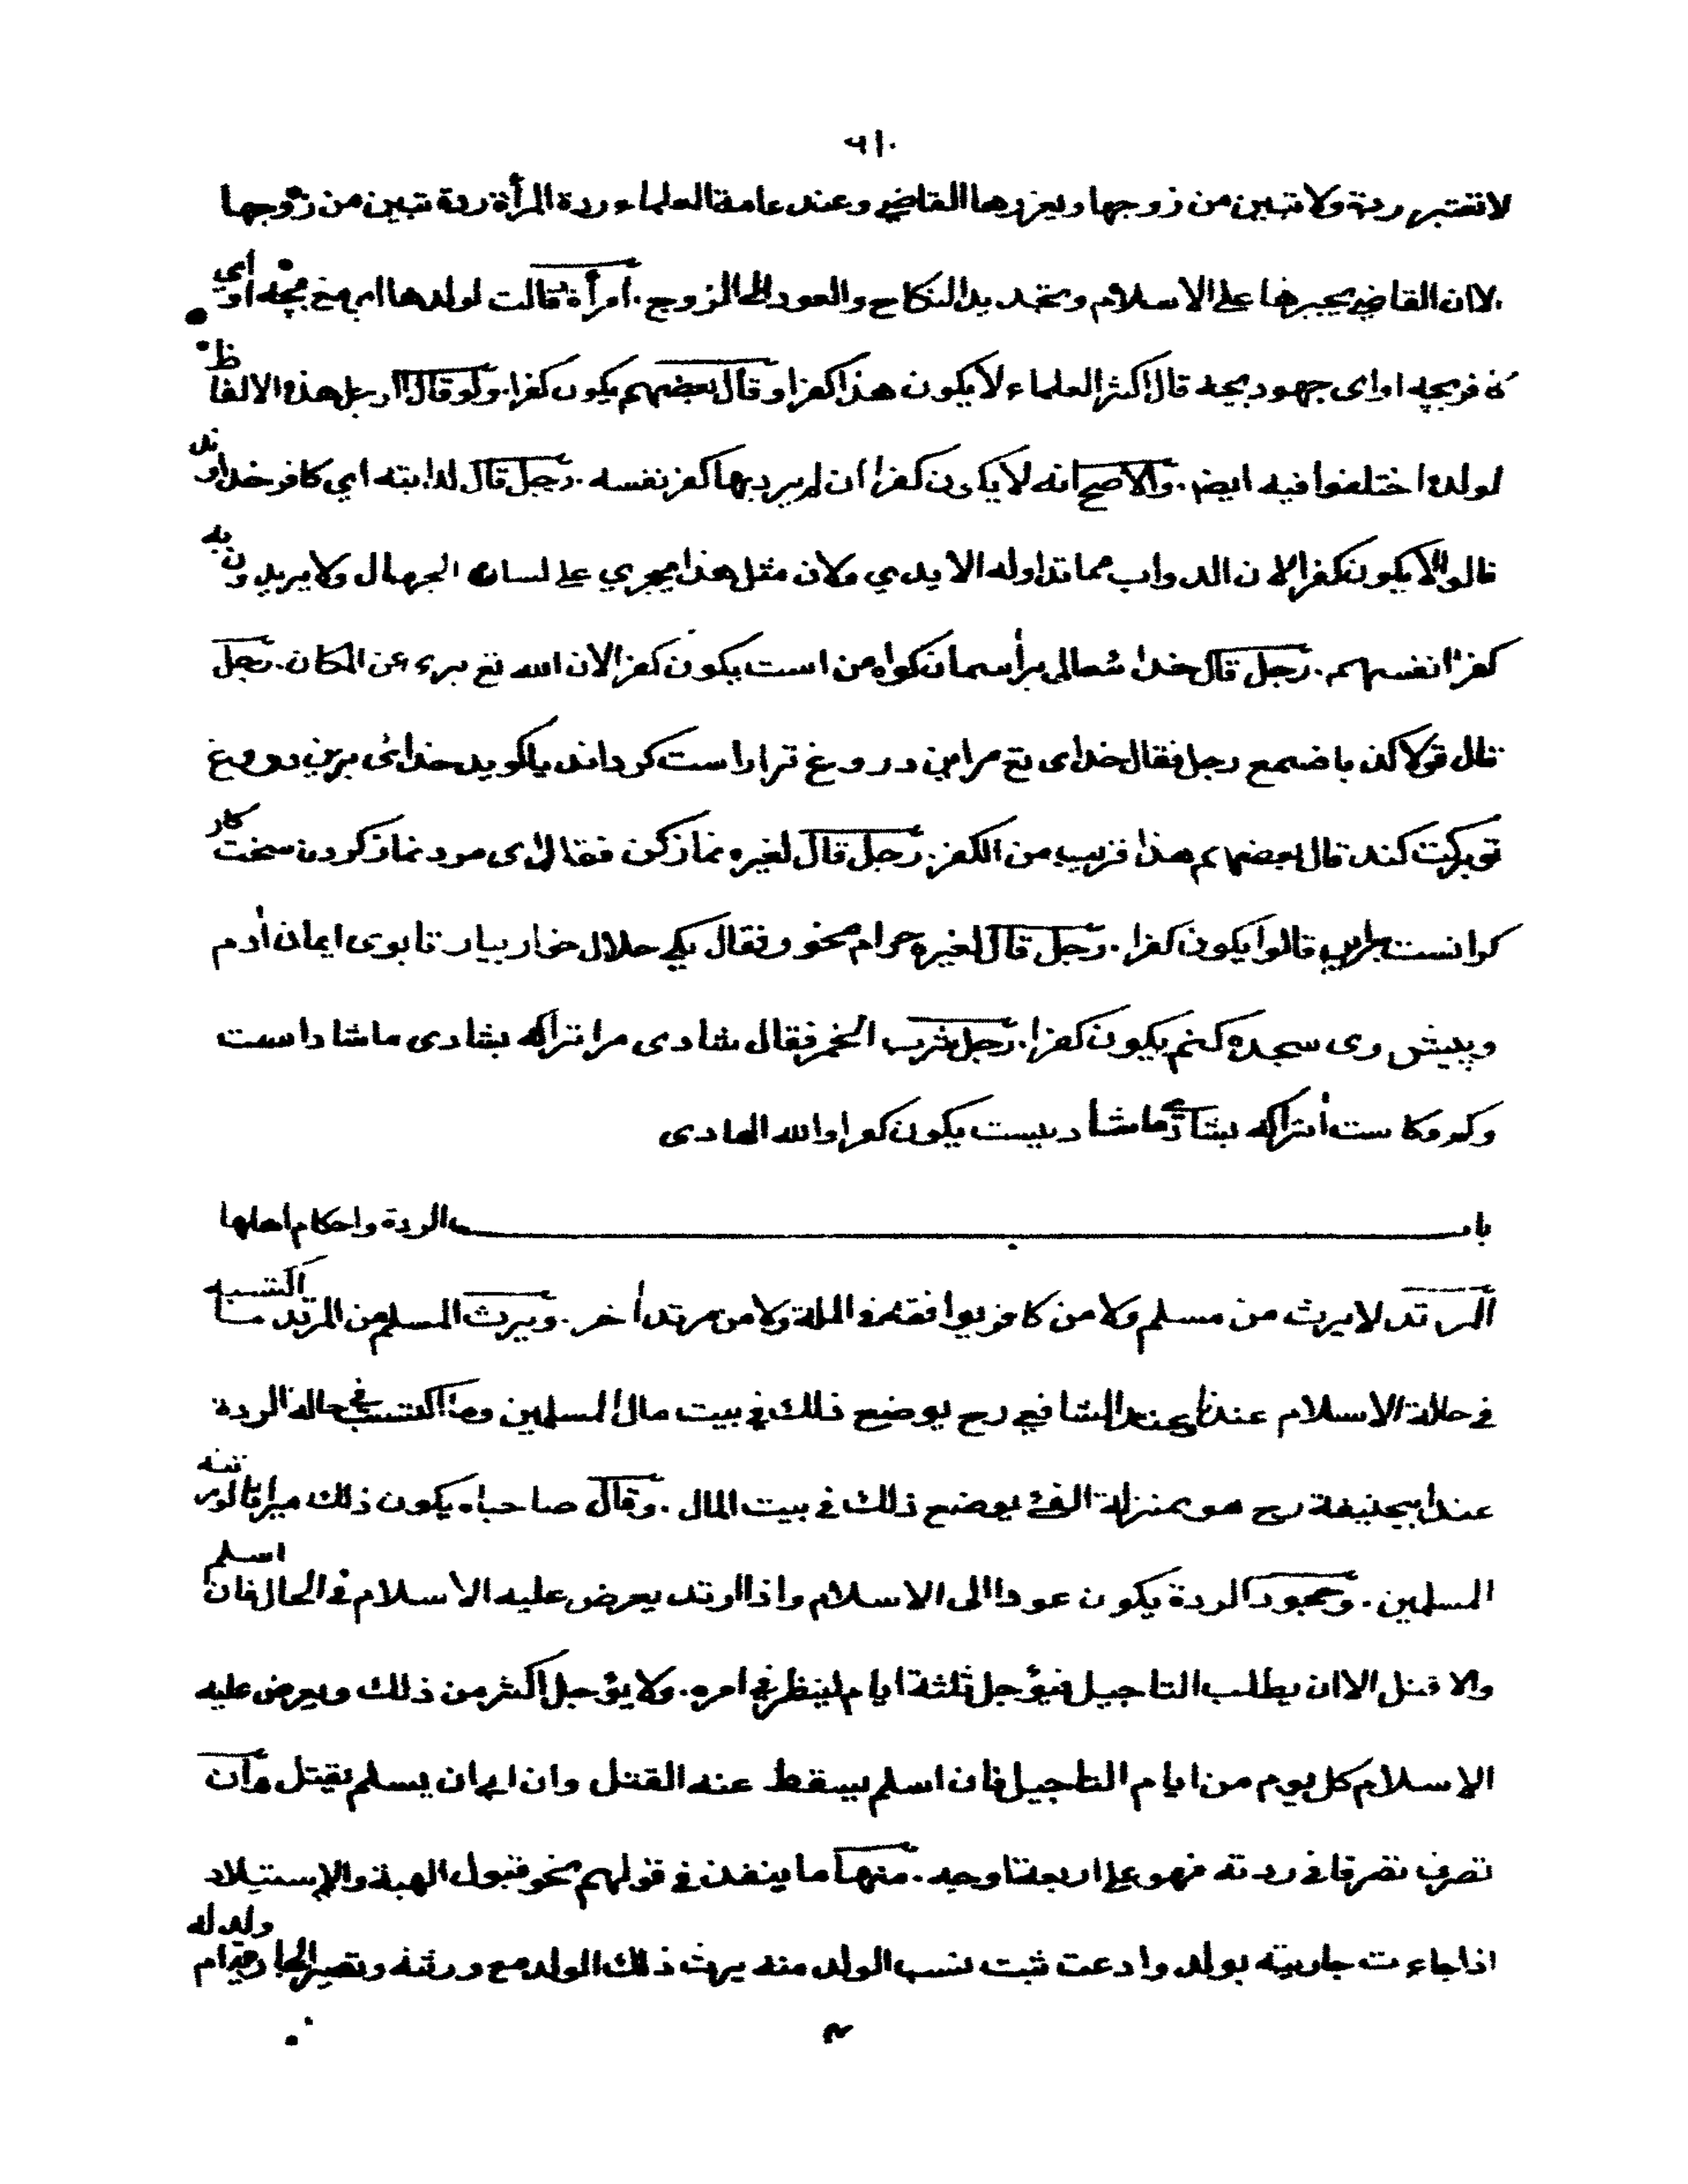 ٦١٠
لا تعتبر ردة ولا تبين من زوجها ويعزرها القاضي وعند عامة العلماء ردة المرأة ردة تبين من زوجها
الا ان القاضي يجبرها على الاسلام وتجديد النكاح والعود الى الزوج . امرأة قالت لولدها اي مغ بچه او اي
كافر بچه او اى جهود بچه قال اكثر العلماء لا يكون هذا كفرا وقال بعضهم يكون كفرا . ولو قال الرجل هذه الالفاظ
لولده اختلفوا فيه ايضم . والاصح انه لا يكون كفرا ان لم يرد بها كفر نفسه . رجل قال لدابته اي كافر خداوند
قالوا لا يكون كفرا لان الدواب مما تداوله الايدي ولان مثل هذا يجري على لسان الجهال ولا يريدون به
كفر انفسهم . رجل قال خدا تعالى بر آسمان كواه من است يكون كفرا لان الله تع برء عن المكان . رجل
قال قولا كذبا ضمع رجل فقال خداى تع مر اين دروغ ترا راست كرداند يا كويد خدائى برين دروغ
تو بركت كند قال بعضهم هذا قريب من الكفر . رجل قال لغيره نماز كن فقال اى مرد نماز كردن سخت كار
كرانست قالوا يكون كفرا . رجل قال لغيره حرام مخور فقال يكي حلال خوار بيار تا بوى ايمان آدم
وپيش وى سجده كنم يكون كفرا . رجل شرب الخمر فقال شادى مر انراكه بشادى ما شاد است
وكم وكاست انراكه بشادى ما شاد نيست يكون كفرا والله الهادى
باب الردة واحكام اهلها
المرتد لا يرث من مسلم ولا من كافر يوافقه في الملة ولا من مرتد آخر . ويرث المسلم من المرتد ما اكتسبه
في حالة الاسلام عندنا وعند الشافعي رح يوضع ذلك في بيت مال المسلمين وما اكتسب في حاله الردة
عند ابيحنيفة رح هو بمنزلة الفئ يوضع ذلك في بيت المال . وقال صاحباه يكون ذلك ميراثا لورثته
المسلمين . وجحود الردة يكون عودا الى الاسلام واذا ارتد يعرض عليه الاسلام في الحال فان اسلم
والا قتل الا ان يطلب التاجيل فيؤجل ثلثة ايام لينظر في امره . ولا يؤجل اكثر من ذلك ويعرض عليه
الاسلام كل يوم من ايام التاجيل فان اسلم يسقط عنه القتل وان ابى ان يسلم يقتل وان
تصرف تصرفا في ردته فهو على اربعة اوجه . منها ما ينفذ في قولهم نحو قبول الهبة والاستيلاد
اذا جاءت جاريته بولد وادعت ثبت نسب الولد منه يرث ذلك الولد مع ورثته وتصير الجارية ام ولد له